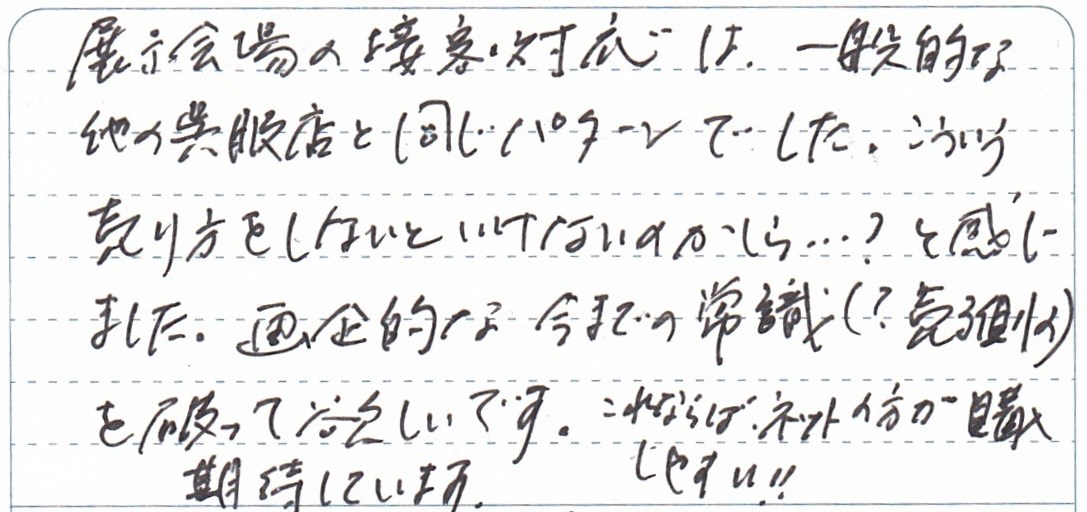 展示会場の接客・対応は、一般的な
他の呉服店と同じパターンでした。こういう
売り方をしないといけないのかしら…?と感じ
ました。画企的な今までの常識(?売る側の)
を破って欲しいです。これならば、ネットの方が購入
しやすい!!
期待しています。